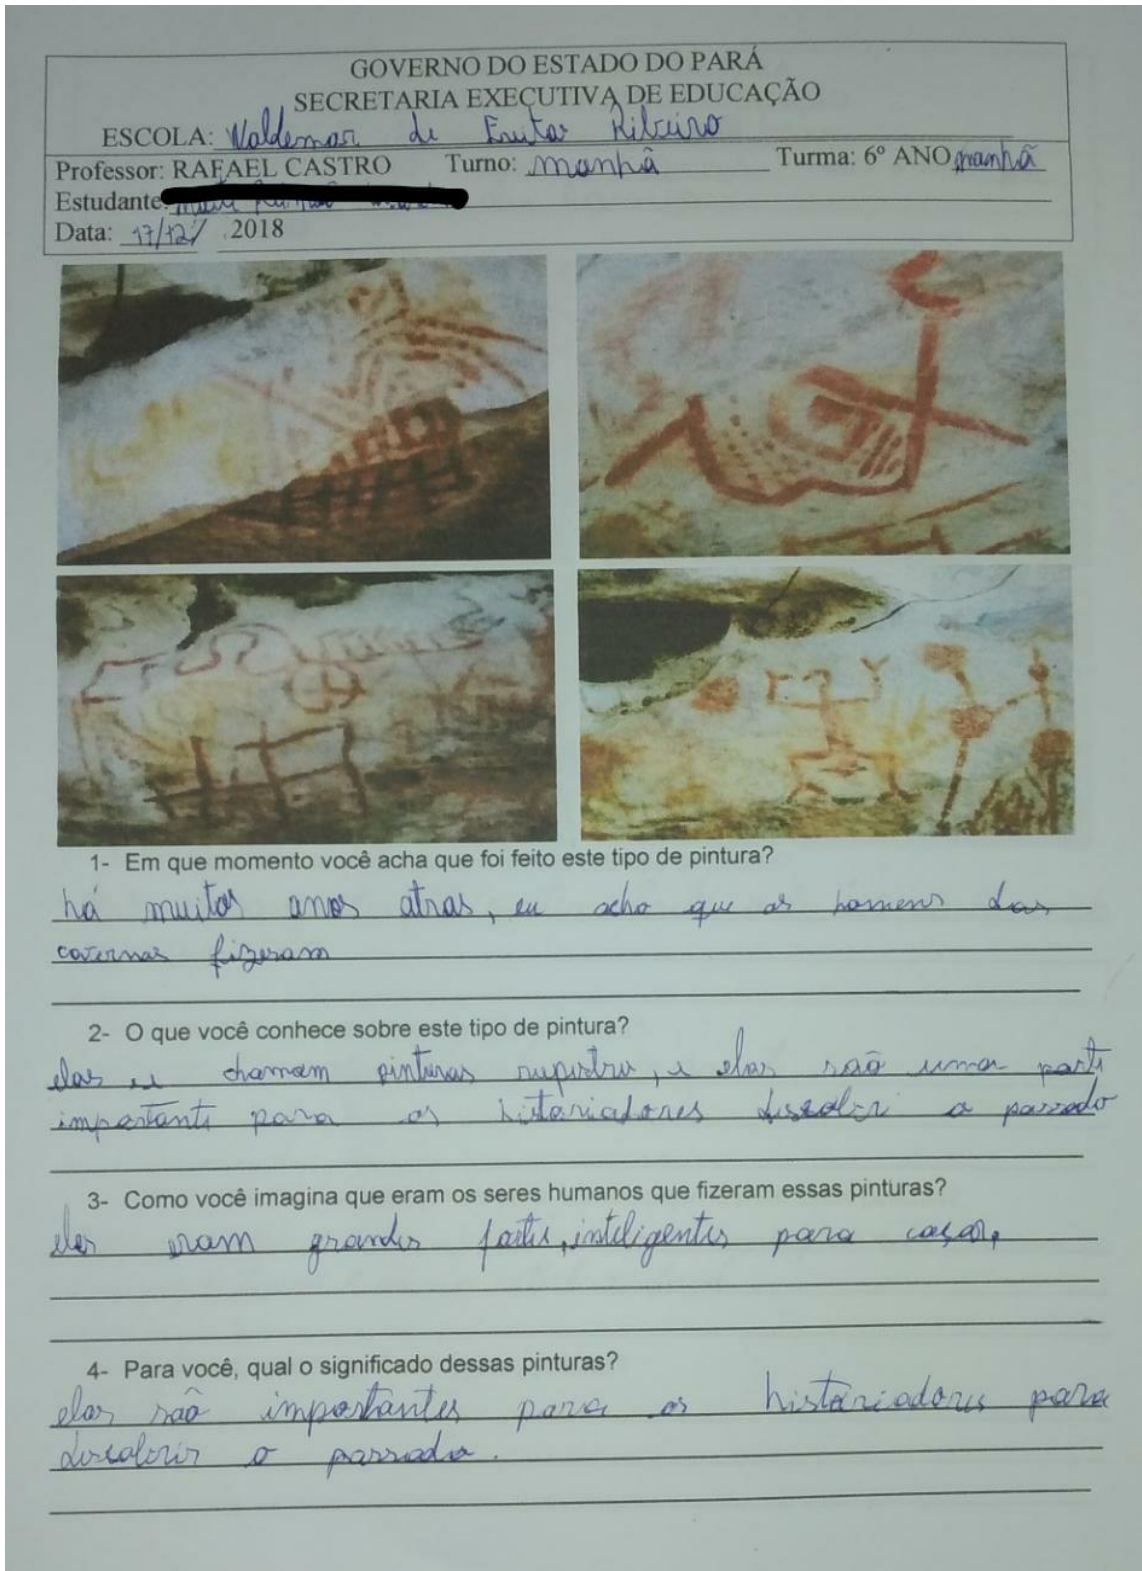 GOVERNO DO ESTADO DO PARÁ
SECRETARIA EXECUTIVA DE EDUCAÇÃO
ESCOLA: Waldemar de Freitas Ribeiro
Professor: RAFAEL CASTRO Turno: manhã Turma: 6º ANO manhã
Estudante:
Data: 17/12/ 2018
1- Em que momento você acha que foi feito este tipo de pintura?
há muitos anos atras, eu acho que os homens das
cavernas fizeram
2- O que você conhece sobre este tipo de pintura?
elas se chamam pinturas rupestre, e elas são uma parte
importante para os historiadores descobrir o passado
3- Como você imagina que eram os seres humanos que fizeram essas pinturas?
eles eram grandes fortes, inteligentes para caçar,
4- Para você, qual o significado dessas pinturas?
elas são importantes para os historiadores para
descobrir o passado.